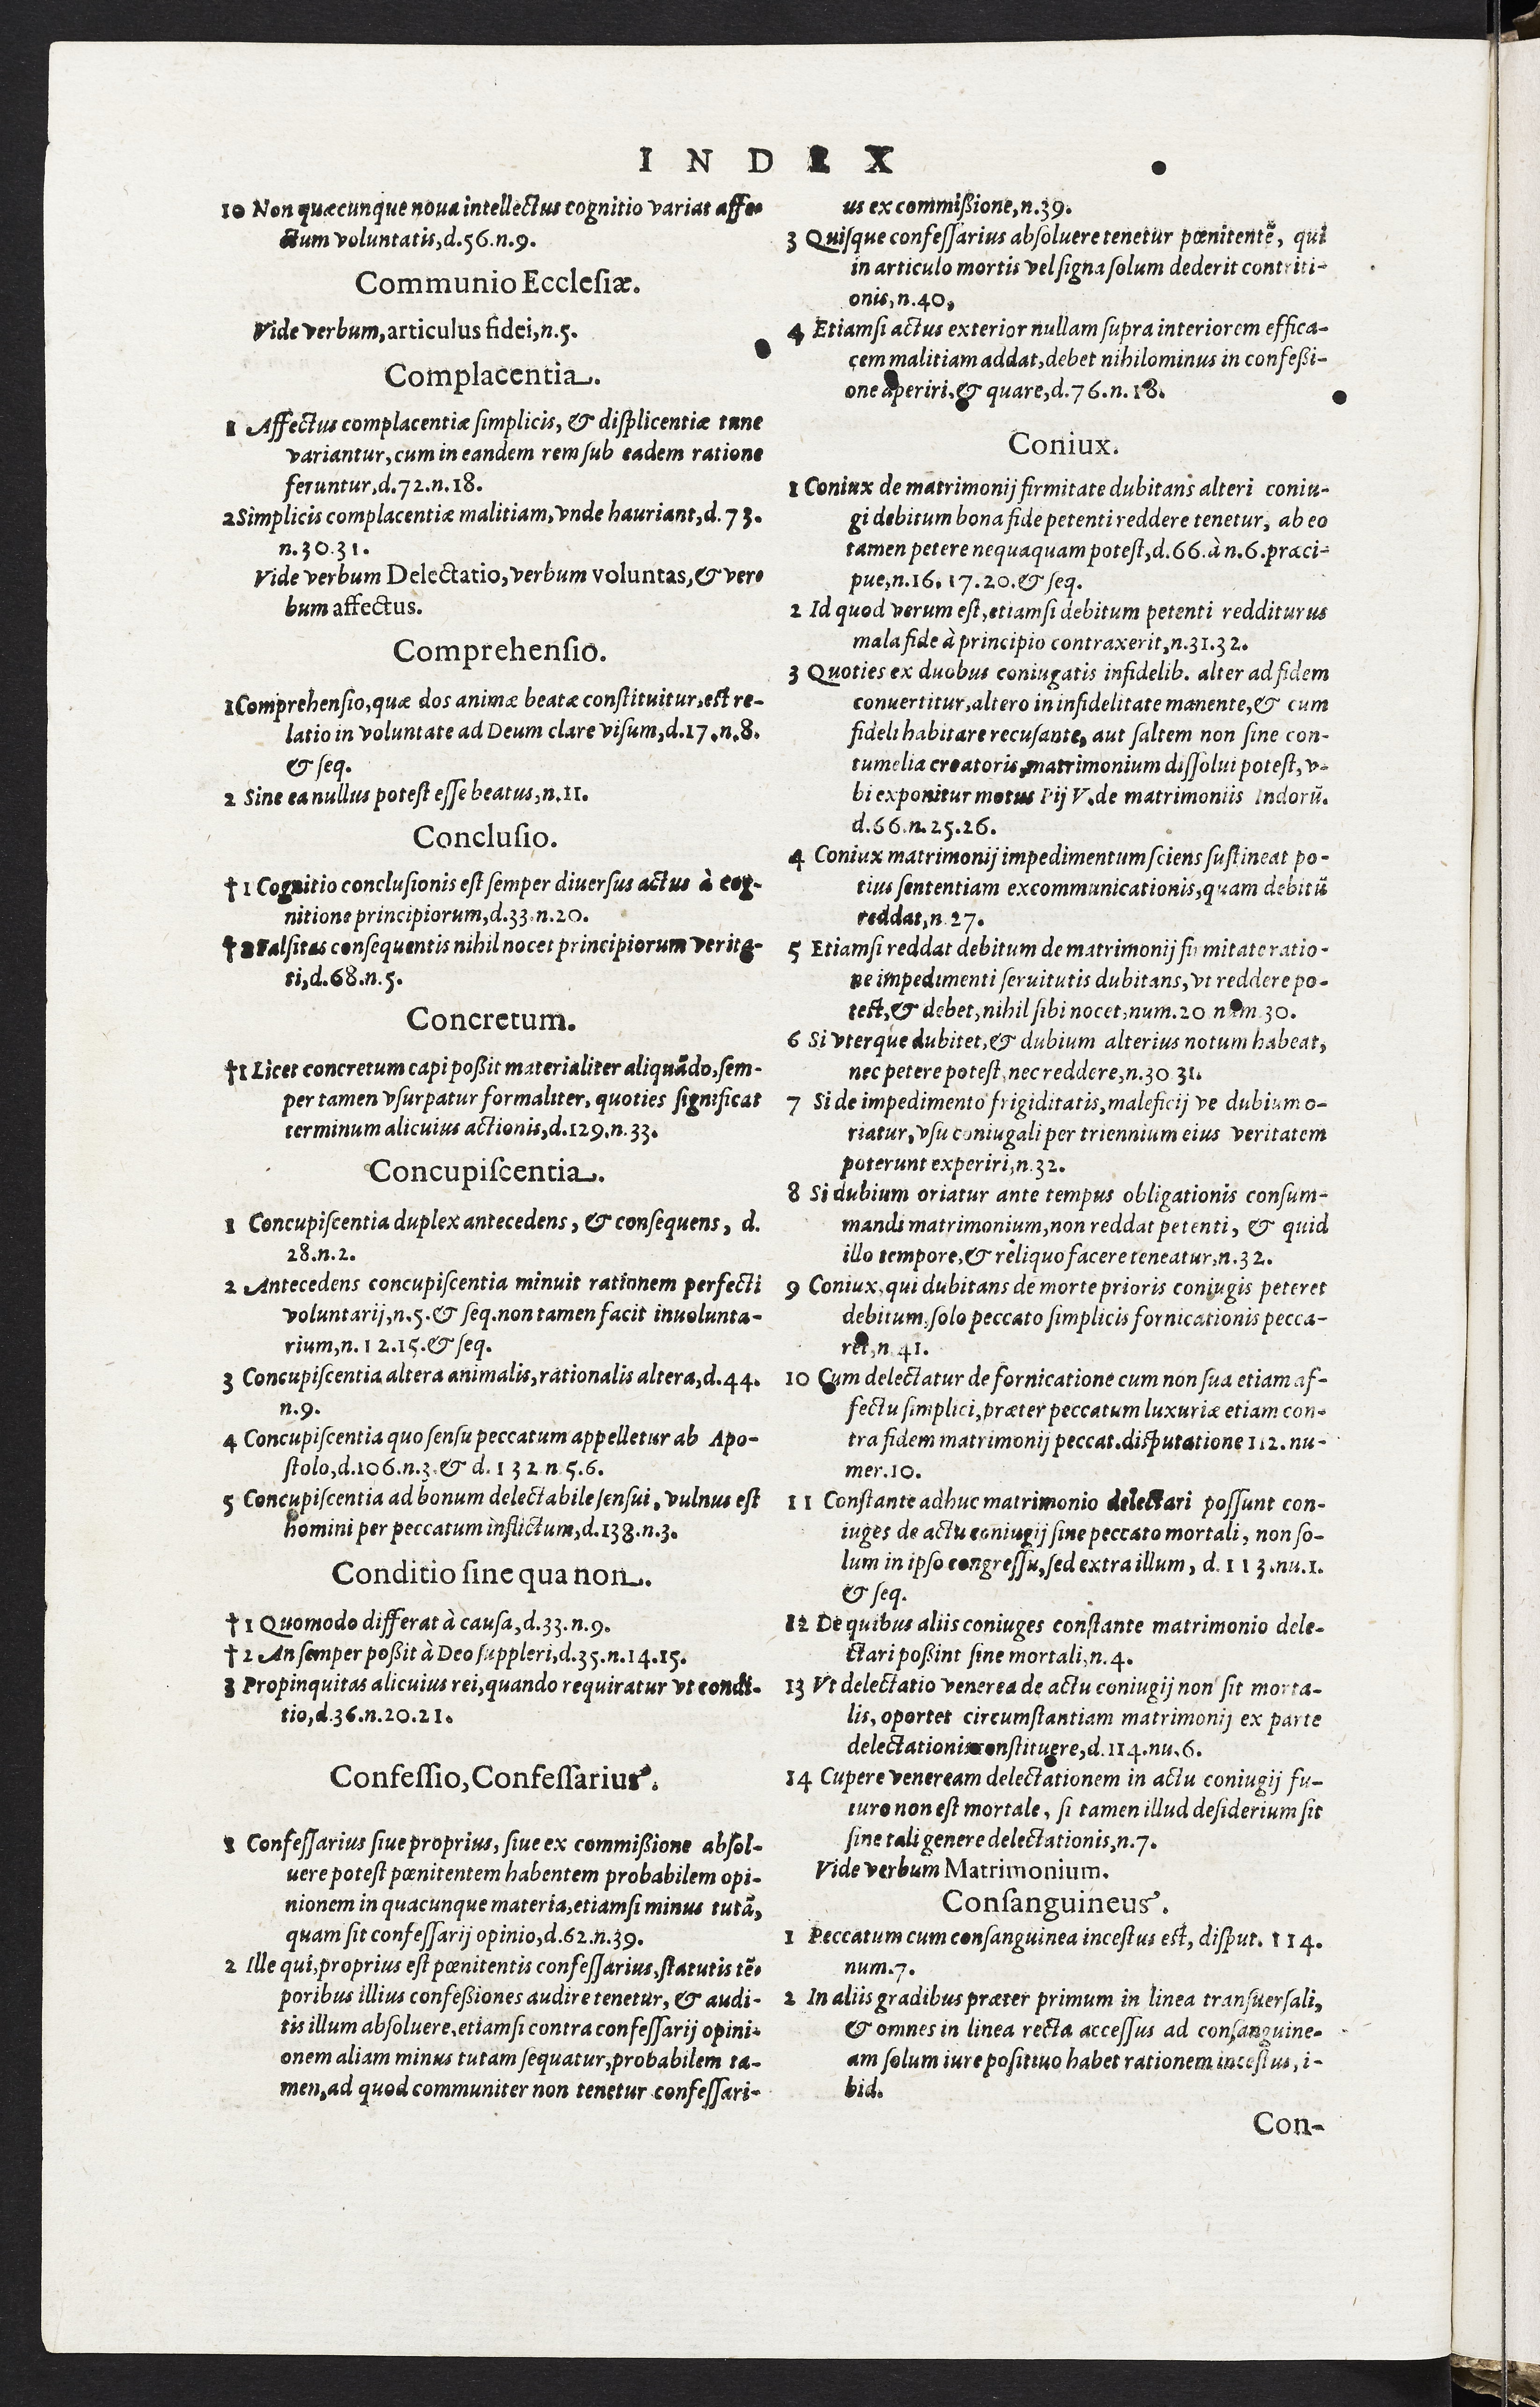 INDEX
10 Non quæcunque noua intellectus cognitio variat affe-
ctum voluntatis,d.56.n.9.
Communio Ecclesiæ.
Vide verbum,articulus fidei,n.5.
Complacentia.
1 Affectus complacentiæ ſimplicis, & diſplicentiæ tunc
variantur,cum in eandem rem ſub eadem ratione
feruntur,d.72.n.18.
2 Simplicis complacentiæ malitiam,vnde hauriant,d.73.
n.30.31.
Vide verbum Delectatio,verbum voluntas,& ver-
bum affectus.
Comprehenſio.
1 Comprehenſio,quæ dos animæ beatæ conſtituitur,est re-
latio in voluntate ad Deum clare viſum,d.17.n.8.
& ſeq.
2 Sine ea nullus poteſt eſſe beatus,n.11.
Concluſio.
†1 Cognitio concluſionis eſt ſemper diuerſus actus à cog-
nitione principiorum,d.33.n.20.
†2 Falſitas conſequentis nihil nocet principiorum verita-
ti,d.68.n.5.
Concretum.
†1 Licet concretum capi poßit materialiter aliquãdo,ſem-
per tamen vſurpatur formaliter, quoties ſignificat
terminum alicuius actionis,d.129.n.33.
Concupiſcentia.
1 Concupiſcentia duplex antecedens, & conſequens, d.
28.n.2.
2 Antecedens concupiſcentia minuit rationem perfecti
voluntarij,n.5.& ſeq.non tamen facit inuolunta-
rium,n.12.15.& ſeq.
3 Concupiſcentia altera animalis,rationalis altera,d.44.
n.9.
4 Concupiſcentia quo ſenſu peccatum appelletur ab Apo-
ſtolo,d.106.n.3.& d.132.n.5.6.
5 Concupiſcentia ad bonum delectabile ſenſui, vulnus eſt
homini per peccatum inflictum,d.138.n.3.
Conditio ſine qua non.
†1 Quomodo differat à cauſa,d.33.n.9.
†2 An ſemper poßit à Deo ſuppleri,d.35.n.14.15.
3 Propinquitas alicuius rei,quando requiratur vt condi-
tio,d.36.n.20.21.
Confeſſio,Confeſſarius.
1 Confeſſarius ſiue proprius, ſiue ex commißione abſol-
uere poteſt pœnitentem habentem probabilem opi-
nionem in quacunque materia,etiamſi minus tutã,
quam ſit confeſſarij opinio,d.62.n.39.
2 Ille qui,proprius eſt pœnitentis confeſſarius,ſtatutis tẽ-
poribus illius confeßiones audire tenetur, & audi-
tis illum abſoluere,etiamſi contra confeſſarij opini-
onem aliam minus tutam ſequatur,probabilem ta-
men,ad quod communiter non tenetur confeſſari-
us ex commißione,n.39.
3 Quiſque confeſſarius abſoluere tenetur pœnitentẽ, qui
in articulo mortis vel ſigna ſolum dederit contriti-
onis,n.40,
4 Etiamſi actus exterior nullam ſupra interiorem effica-
cem malitiam addat,debet nihilominus in confeßi-
one aperiri,& quare,d.76.n.18.
Coniux.
1 Coniux de matrimonij firmitate dubitans alteri coniu-
gi debitum bona fide petenti reddere tenetur, ab eo
tamen petere nequaquam poteſt,d.66.à n.6.præci-
pue,n.16.17.20.& ſeq.
2 Id quod verum eſt,etiamſi debitum petenti redditurus
mala fide à principio contraxerit,n.31.32.
3 Quoties ex duobus coniugatis infidelib. alter ad fidem
conuertitur,altero in infidelitate manente,& cum
fideli habitare recuſante, aut ſaltem non ſine con-
tumelia creatoris,matrimonium diſſolui poteſt, v-
bi exponitur motus Pij V.de matrimoniis Indorũ.
d.66.n.25.26.
4 Coniux matrimonij impedimentum ſciens ſuſtineat po-
tius ſententiam excommunicationis,quam debitũ
reddat,n.27.
5 Etiamſi reddat debitum de matrimonij firmitate ratio-
ne impedimenti ſeruitutis dubitans, vt reddere po-
test,& debet,nihil ſibi nocet,num.20 num.30.
6 Si vterque dubitet,& dubium alterius notum habeat,
nec petere poteſt,nec reddere,n.30 31.
7 Si de impedimento frigiditatis,maleficij ve dubium o-
riatur, vſu coniugali per triennium eius veritatem
poterunt experiri,n.32.
8 Si dubium oriatur ante tempus obligationis conſum-
mandi matrimonium,non reddat petenti, & quid
illo tempore,& reliquo facere teneatur,n.32.
9 Coniux,qui dubitans de morte prioris coniugis peteret
debitum,ſolo peccato ſimplicis fornicationis pecca-
ret,n.41.
10 Cum delectatur de fornicatione cum non ſua etiam af-
fectu ſimplici,præter peccatum luxuriæ etiam con-
tra fidem matrimonij peccat.diſputatione 112.nu-
mer.10.
11 Conſtante adhuc matrimonio delectari poſſunt con-
iuges de actu coniugij ſine peccato mortali, non ſo-
lum in ipſo congreſſu,ſed extra illum, d.113.nu.1.
& ſeq.
12 De quibus aliis coniuges conſtante matrimonio dele-
ctari poßint ſine mortali,n.4.
13 Vt delectatio venerea de actu coniugij non ſit morta-
lis, oportet circumſtantiam matrimonij ex parte
delectationis conſtituere,d.114.nu.6.
14 Cupere veneream delectationem in actu coniugij fu-
turo non eſt mortale, ſi tamen illud deſiderium ſit
ſine tali genere delectationis,n.7.
Vide verbum Matrimonium.
Conſanguineus.
1 Peccatum cum conſanguinea inceſtus eſt, diſput. 114.
num.7.
2 In aliis gradibus præter primum in linea tranſuerſali,
& omnes in linea recta acceſſus ad conſanguine-
am ſolum iure poſitiuo habet rationem inceſtus, i-
bid.
Con-